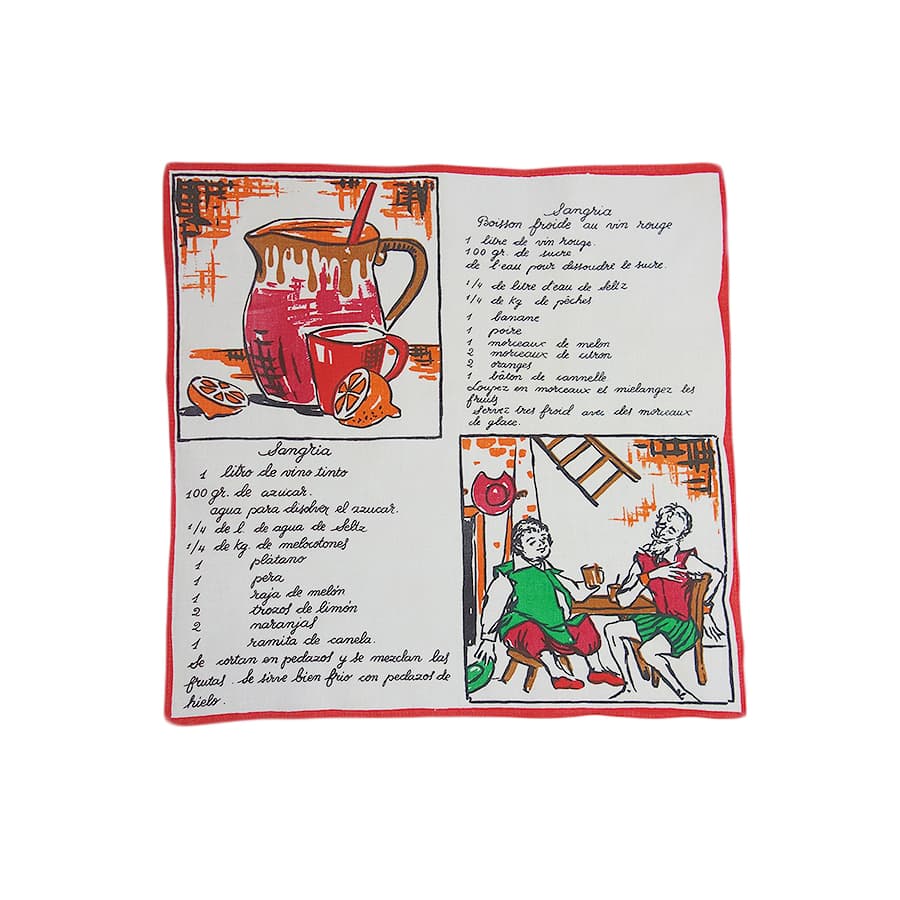 Sangria
Boisson froide au vin rouge
1 litre de vin rouge.
100 gr. de sucre
de l'eau pour dissoudre le sucre.
1/4 de litre d'eau de Seltz
1/4 de kg de pêches
1 banane
1 poire
1 morceaux de melon
2 morceaux de citron
2 oranges
1 bâton de cannelle
Coupez en morceaux et mielangez les
fruits
Servez tres froid avec des morceaux
de glace.
Sangria
1 litro de vino tinto
100 gr. de azucar.
agua para disolver el azucar.
1/4 de l. de agua de Seltz
1/4 de kg. de melocotones
1 plátano
1 pera
1 raja de melón
2 trozos de limón
2 naranjas
1 ramita de canela.
Se cortan en pedazos y se mezclan las
frutas. Se sirve bien frio con pedazos de
hielo.